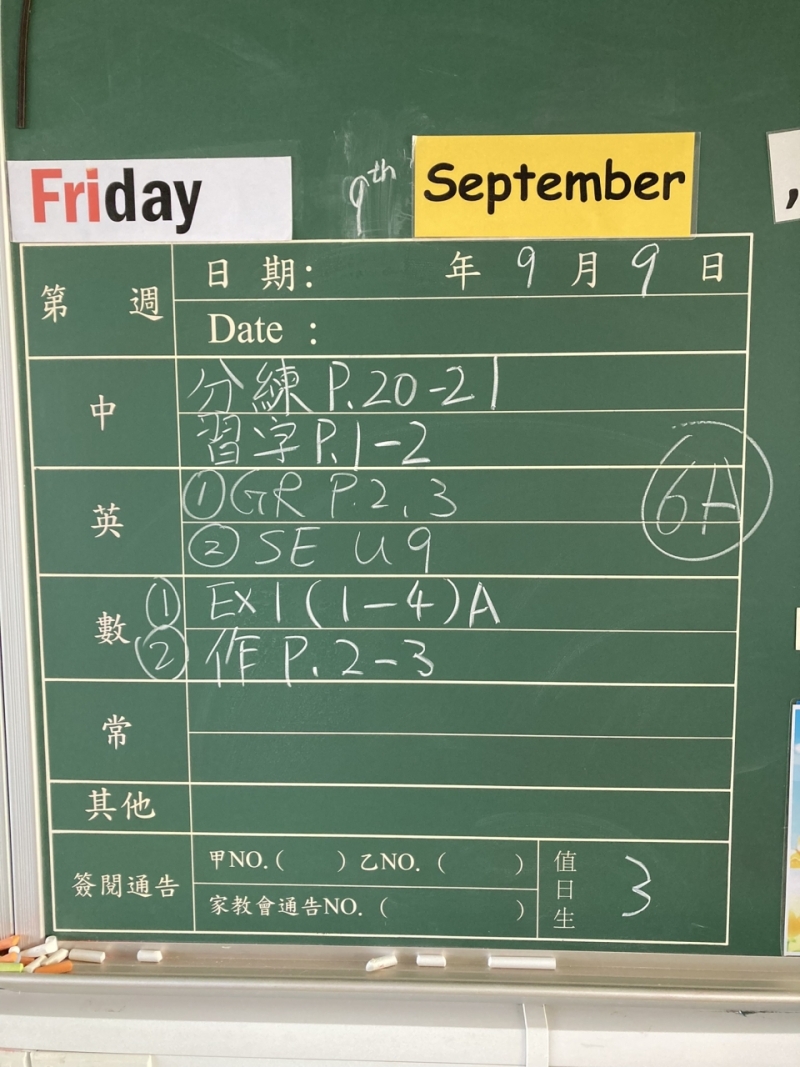 Friday 9th September ,
第 週
日 期: 年 9 月 9 日
Date :
中
分練 P.20-21
習字 P.1-2
英
①GR P.2,3
② SE U9
6A
數
① Ex1(1-4)A
② 作 P.2-3
常
其他
簽閱通告
甲NO.( ) 乙NO. ( )
家教會通告NO. ( )
值日生
3